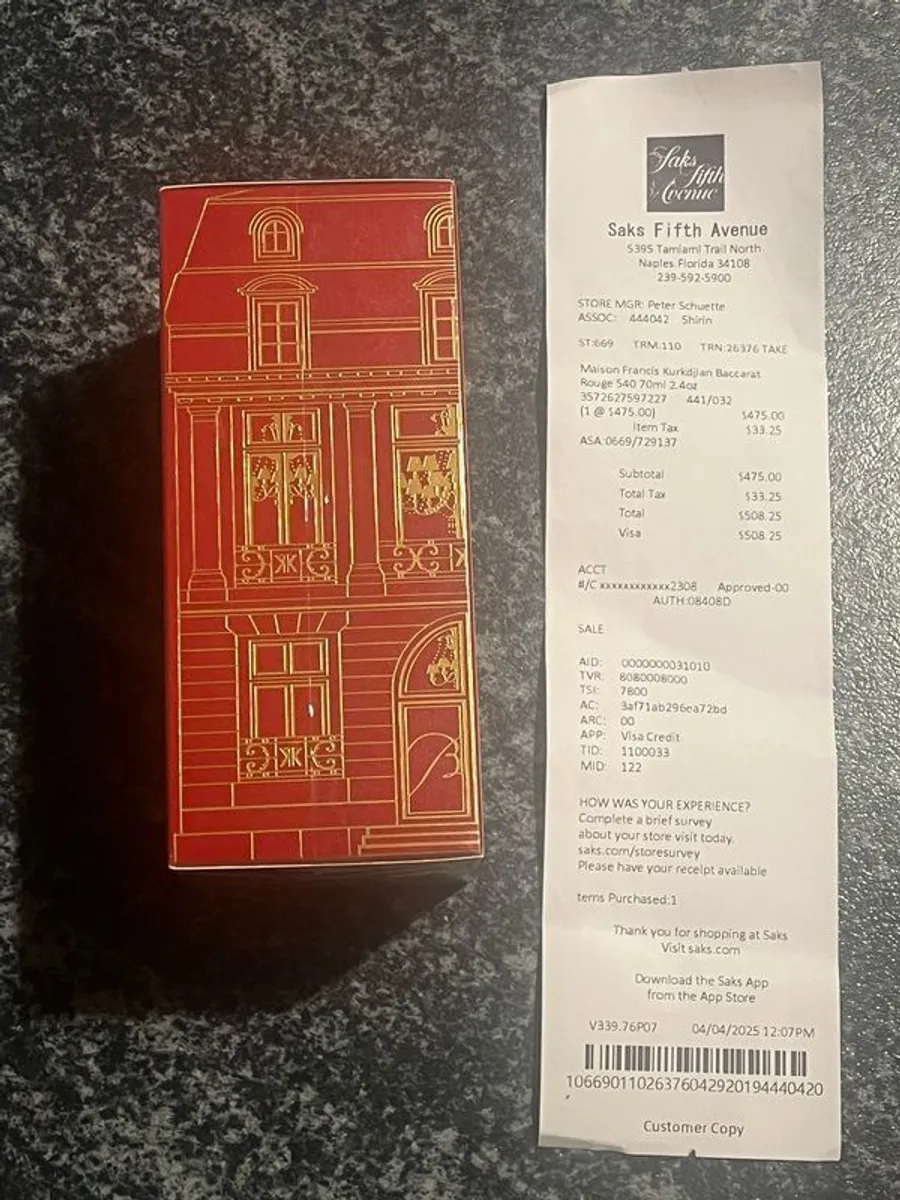 Saks
fifth
Avenue
Saks Fifth Avenue
5395 Tamiami Trail North
Naples Florida 34108
239-592-5900
STORE MGR: Peter Schuette
ASSOC: 444042 Shirin
ST:669 TRM:110 TRN:26376 TAKE
Maison Francis Kurkdjian Baccarat
Rouge 540 70ml 2.4oz
3572627597227 441/032
(1 @ $475.00) $475.00
Item Tax $33.25
ASA:0669/729137
Subtotal $475.00
Total Tax $33.25
Total $508.25
Visa $508.25
ACCT
#/C xxxxxxxxxxxx2308 Approved-00
AUTH:08408D
SALE
AID: 0000000031010
TVR: 8080008000
TSI: 7800
AC: 3af71ab296ea72bd
ARC: 00
APP: Visa Credit
TID: 1100033
MID: 122
HOW WAS YOUR EXPERIENCE?
Complete a brief survey
about your store visit today.
saks.com/storesurvey
Please have your receipt available
tems Purchased:1
Thank you for shopping at Saks
Visit saks.com
Download the Saks App
from the App Store
V339.76P07 04/04/2025 12:07PM
10669011026376042920194440420
Customer Copy